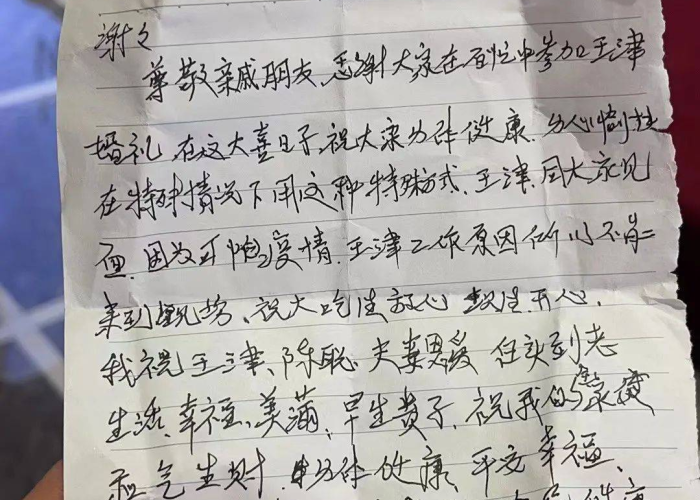 谢々
尊敬亲戚朋友,感谢大家在百忙中参加王津
婚礼,在这大喜日子,祝大家身体健康.
在特殊情况下用这种特殊方式.王津.同大家见
面.因为可怕疫情.王津工作原因所以不能
来到现场、祝大吃生放心 开心.
我祝王津、陈聪 夫妻恩爱 白头到老
生活、幸福、美满、早生贵子、祝我的家庭
和气生财.身体健康、平安幸福、
健康